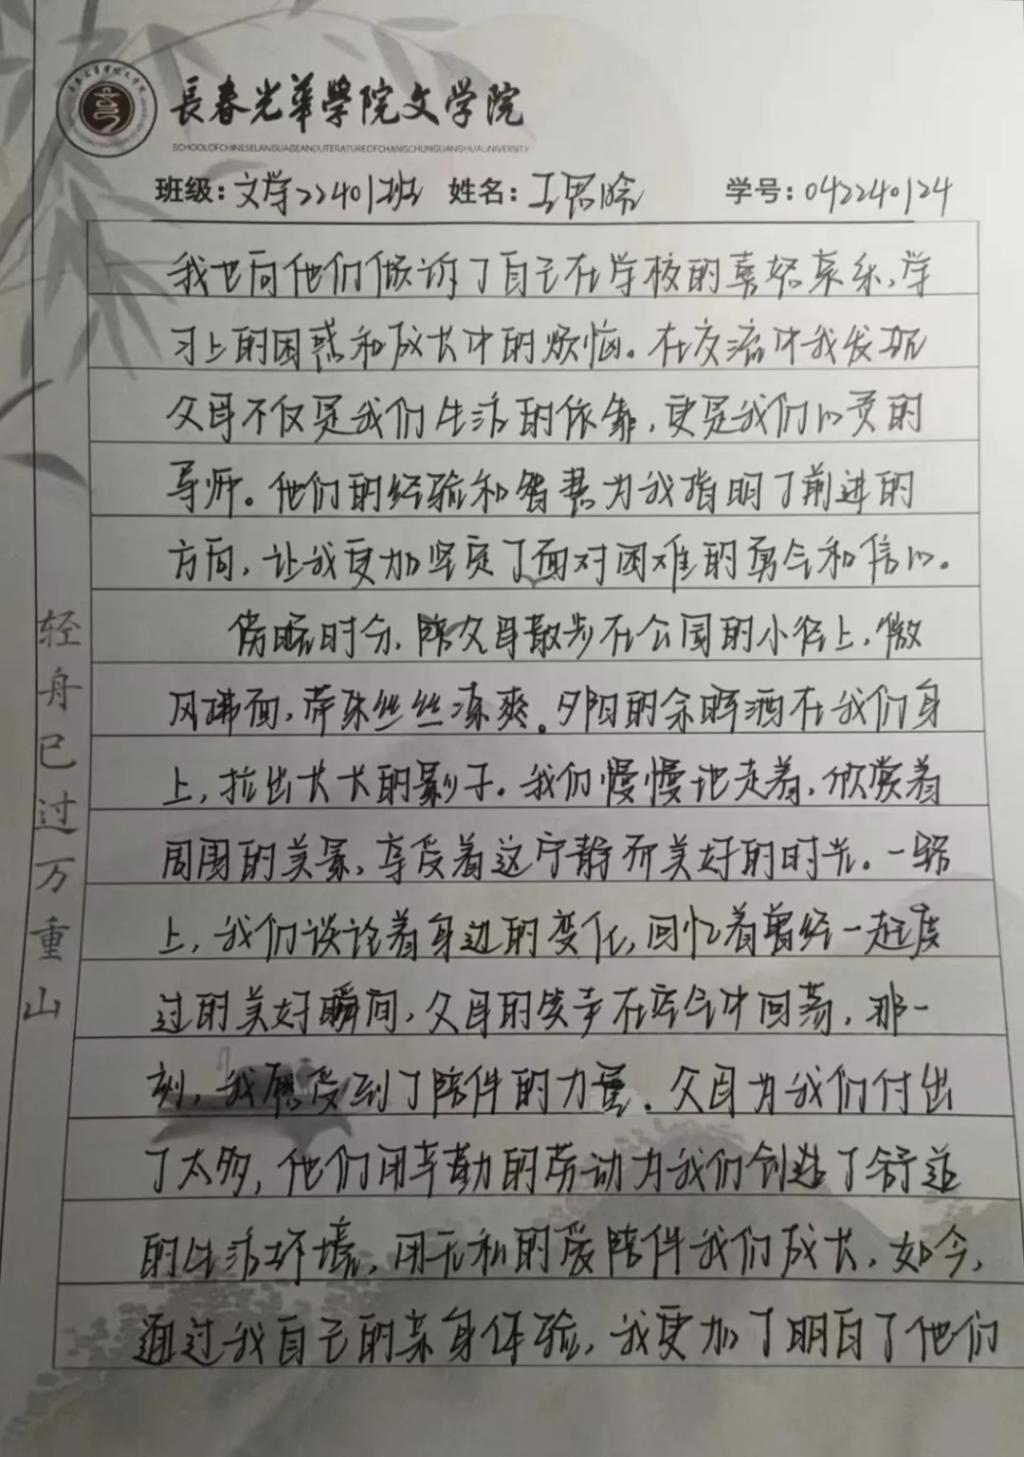 長春光華學院文学院
SCHOOLOFCHINESELANGUAGEANDLITERATUREOFCHANGCHUNGUANGHUAUNIVERSITY
班级：文学22401班 姓名：王思晗 学号：042240124
我也向他们倾诉了自己在学校的喜怒哀乐、学
习上的困惑和成长中的烦恼。在交流中我发现
父母不仅是我们生活的依靠，更是我们心灵的
导师。他们的经验和智慧为我指明了前进的
方向，让我更加坚定了面对困难的勇气和信心。
傍晚时分，陪父母散步在公园的小径上，微
风拂面，带来丝丝凉爽。夕阳的余晖洒在我们身
上，拉出长长的影子。我们慢慢地走着，欣赏着
周围的美景，享受着这宁静而美好的时光。一路
上，我们谈论着身边的变化，回忆着曾经一起度
过的美好瞬间，父母的笑声在空气中回荡，那一
刻，我感受到了陪伴的力量。父母为我们付出
了太多，他们用辛勤的劳动为我们创造了舒适
的生活环境，用无私的爱陪伴我们成长。如今，
通过我自己的亲身体验，我更加了明白了他们
轻舟已过万重山